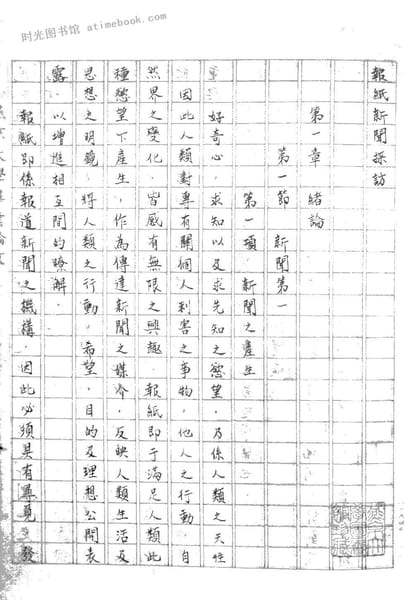 时光图书馆 atimebook.com
報紙新聞採訪
第一章 緒論
第一節 新聞第一
第一項 新聞之產生
好奇心，求知以及求先知之慾望，乃係人類之天性
，因此人類對專有關個人利害之事物，他人之行動，自
然界之變化，皆感有無限之興趣，報紙即于滿足人類此
種慾望下產生，作為傳達新聞之媒介，反映人類生活及
思想之明鏡，將人類之行動，希望，目的及理想公開表
露，以增進相互間的瞭解。
報紙即係報道新聞之機構，因此必須具有尋覓，發